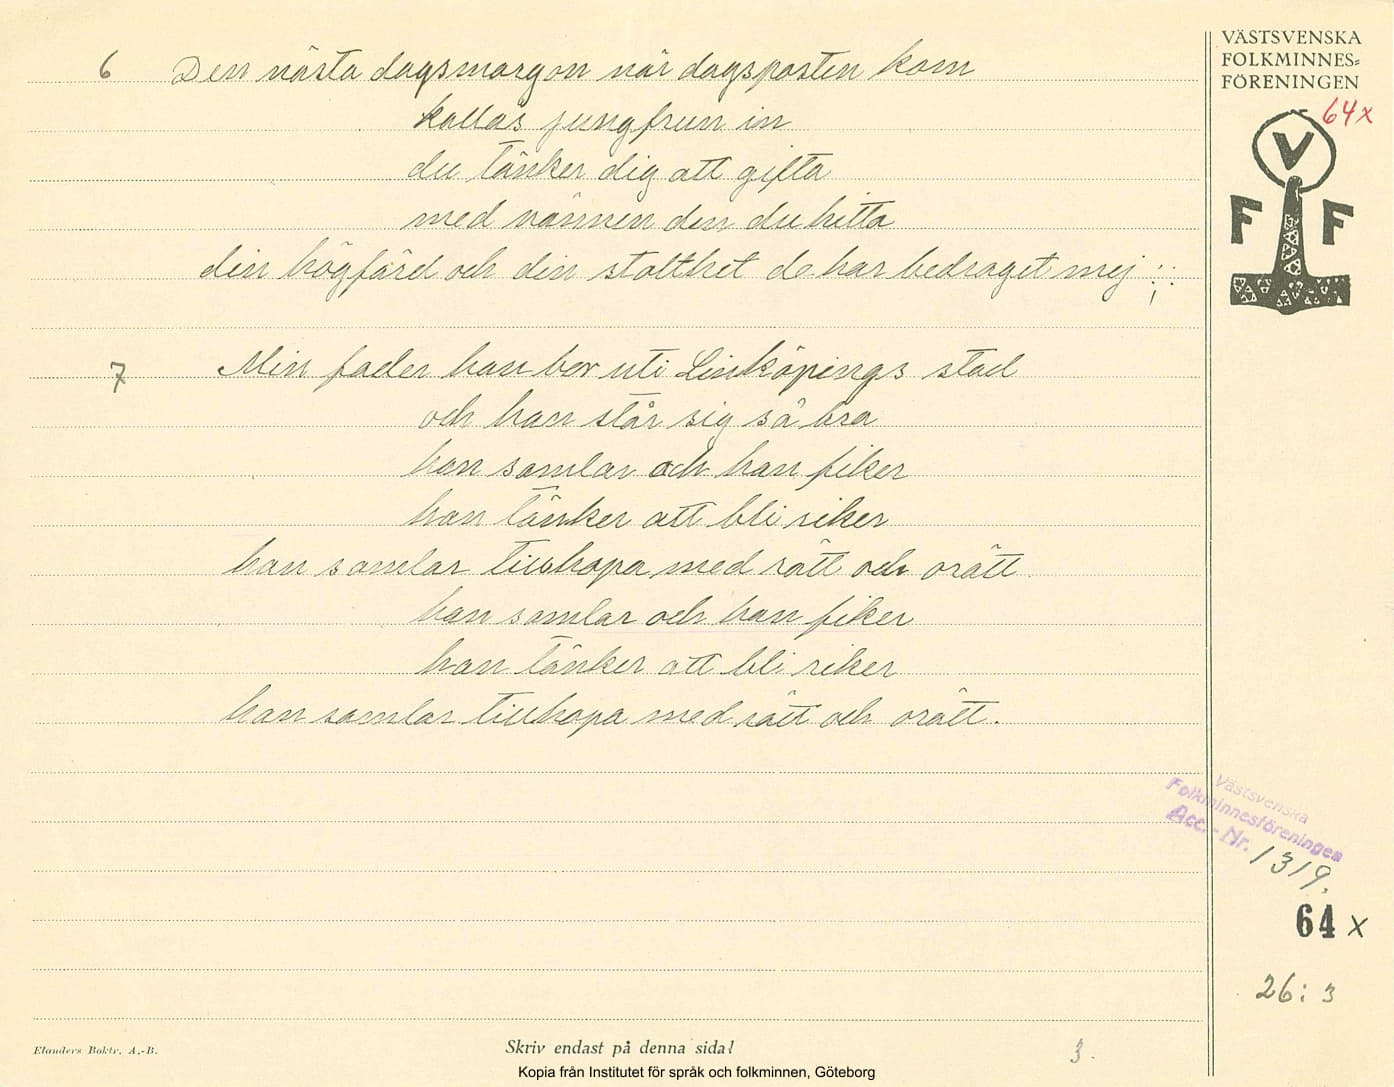 VÄSTSVENSKA
FOLKMINNES=
FÖRENINGEN
64x
V
F F
6 Den nästa dagsmorgon när dagsposten kom
kallas jungfrun in
du tänker dig att gifta
med vännen den du hitta
din högfärd och din stolthet de har bedraget mej :;:
7 Min fader han bor uti Linköpings stad
och han står sig så bra
han samlar och han fiker
han tänker att bli riker
han samlar tillhopa med rätt och orätt
han samlar och han fiker
han tänker att bli riker
han samlar tillhopa med rätt och orätt.
Västsvenska
Folkminnesföreningen
Acc.-Nr. 1319.
64 x
26:3
Elanders Boktr. A.-B.
Skriv endast på denna sida!
3.
Kopia från Institutet för språk och folkminnen, Göteborg